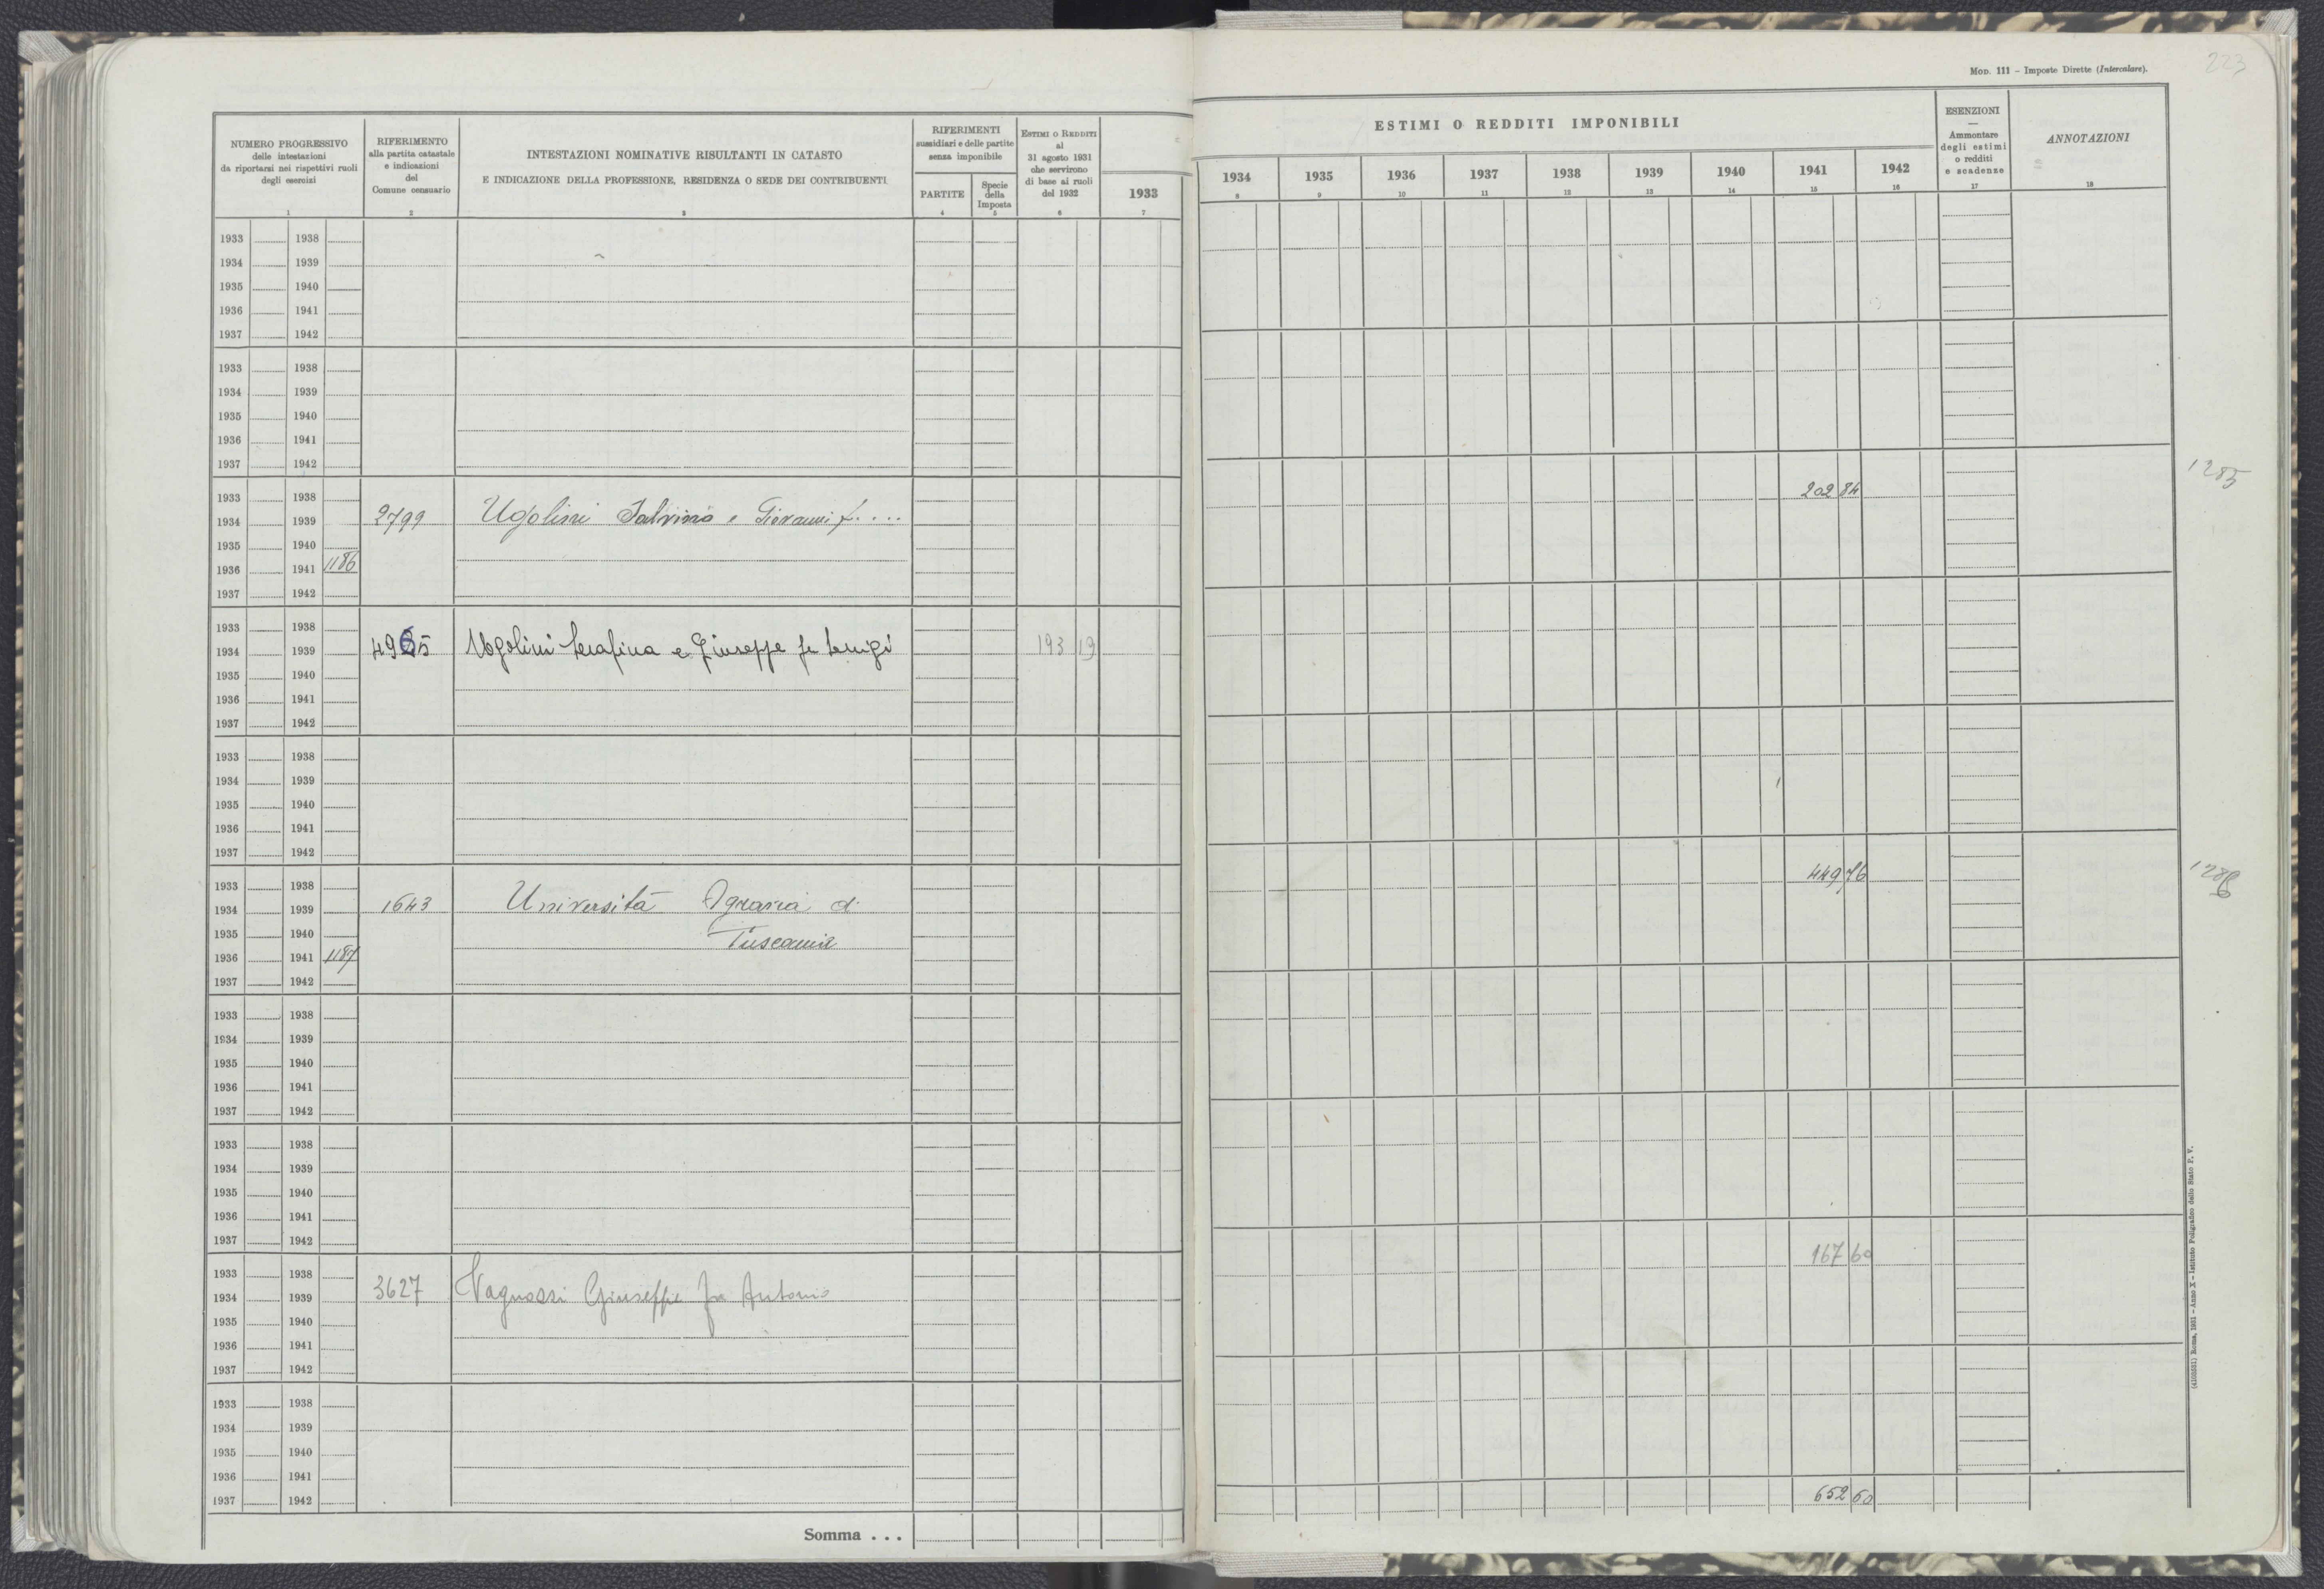 223
MOD. 111 – Imposte Dirette (Intercalare).
NUMERO PROGRESSIVO
delle intestazioni
da riportarsi nei rispettivi ruoli
degli esercizi
1
RIFERIMENTO
alla partita catastale
e indicazioni
del
Comune censuario
2
INTESTAZIONI NOMINATIVE RISULTANTI IN CATASTO
E INDICAZIONE DELLA PROFESSIONE, RESIDENZA O SEDE DEI CONTRIBUENTI
3
RIFERIMENTI
sussidiari e delle partite
senza imponibile
PARTITE
4
Specie
della
Imposta
5
ESTIMI O REDDITI
al
31 agosto 1931
che servirono
di base ai ruoli
del 1932
6
1933
7
ESTIMI O REDDITI IMPONIBILI
1934 1935 1936 1937 1938 1939 1940 1941 1942
8 9 10 11 12 13 14 15 16
ESENZIONI
—
Ammontare
degli estimi
o redditi
e scadenze
17
ANNOTAZIONI
18
1933 1938
1934 1939
1935 1940
1936 1941
1937 1942
1933 1938
1934 1939
1935 1940
1936 1941
1937 1942
1933 1938 202 84 1285
1934 1939 2799 Ugolini Salvino e Giovanni f. ...
1935 1940
1936 1941 1186
1937 1942
1933 1938
1934 1939 4965 Ugolini Serafina e Giuseppe fu Luigi 193 19
1935 1940
1936 1941
1937 1942
1933 1938
1934 1939
1935 1940
1936 1941
1937 1942
1933 1938 449 76 1286
1934 1939 1643 Università Agraria di
1935 1940 Tuscania
1936 1941 1187
1937 1942
1933 1938
1934 1939
1935 1940
1936 1941
1937 1942
1933 1938
1934 1939
1935 1940
1936 1941
1937 1942
1933 1938 167 60
1934 1939 3627 Vagnozzi Giuseppe fu Antonio
1935 1940
1936 1941
1937 1942
1933 1938
1934 1939
1935 1940
1936 1941
1937 1942 652 60
Somma . . .
Roma, 1931 – Anno X – Istituto Poligrafico dello Stato P. V.